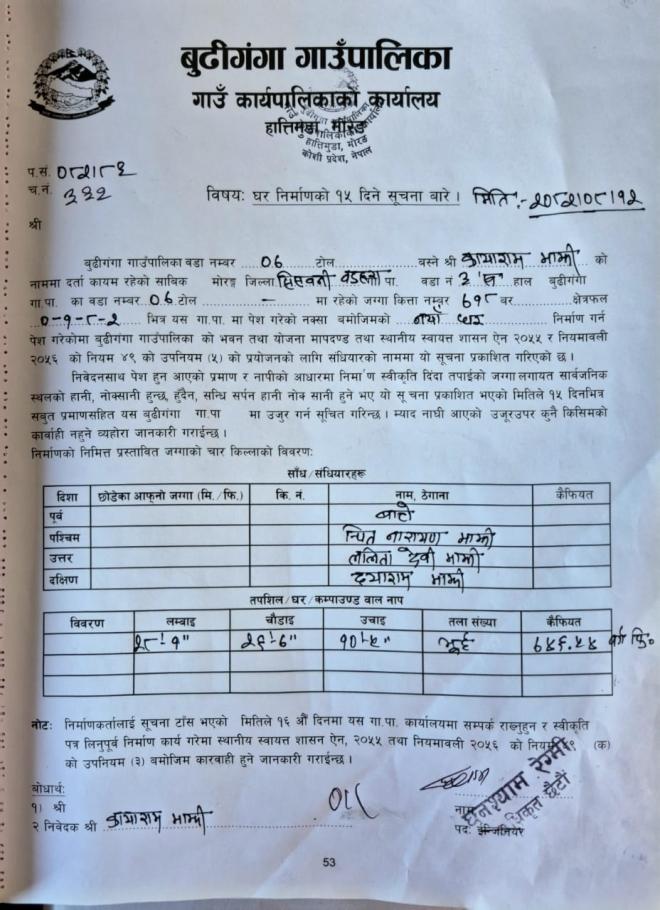 बुढीगंगा गाउँपालिका
गाउँ कार्यपालिकाको कार्यालय
हात्तिमुडा, मोरङ
हात्तिमुडा, मोरङ
कोशी प्रदेश, नेपाल
प.सं. ०८२।८३
च.नं. ३३२
विषय: घर निर्माणको १५ दिने सूचना बारे । मिति :- २०८२।०८।१२
श्री
बुढीगंगा गाउँपालिका वडा नम्बर ०६ टोल बस्ने श्री माझी को
नाममा दर्ता कायम रहेको साविक मोरङ जिल्ला पा. वडा नं ३ 'ख' हाल बुढीगंगा
गा.पा. का वडा नम्बर ०६ टोल - मा रहेको जग्गा कित्ता नम्बर ६९८ वर क्षेत्रफल
०-१-८-२ भित्र यस गा.पा. मा पेश गरेको नक्सा बमोजिमको नयाँ घर निर्माण गर्न
पेश गरेकोमा बुढीगंगा गाउँपालिका को भवन तथा योजना मापदण्ड तथा स्थानीय स्वायत्त शासन ऐन २०५५ र नियमावली
२०५६ को नियम ४९ को उपनियम (५) को प्रयोजनको लागि संधियारको नाममा यो सूचना प्रकाशित गरिएको छ ।
निवेदनसाथ पेश हुन आएको प्रमाण र नापीको आधारमा निर्मा'ण स्वीकृति दिंदा तपाईको जग्गा लगायत सार्वजनिक
स्थलको हानी, नोक्सानी हुन्छ, हुँदैन, सन्धि सर्पन हानी नोक सानी हुने भए यो सू चना प्रकाशित भएको मितिले १५ दिनभित्र
सबुत प्रमाणसहित यस बुढीगंगा गा.पा मा उजुर गर्न सूचित गरिन्छ । म्याद नाघी आएको उजूरउपर कुनै किसिमको
कार्वाही नहुने व्यहोरा जानकारी गराईन्छ ।
निर्माणको निमित्त प्रस्तावित जग्गाको चार किल्लाको विवरण:
साँध/संधियारहरू
दिशा छोडेका आफ्नो जग्गा (मि./फि.) कि. नं. नाम, ठेगाना कैफियत
पूर्व बाटो
पश्चिम नारायण माझी
उत्तर ललिता देवी माझी
दक्षिण दयाराम माझी
तपशिल/घर/कम्पाउण्ड वाल नाप
विवरण लम्बाइ चौडाइ उचाइ तला संख्या कैफियत
२८'-१" २६'-६" भूई ७४६.२४ वर्ग फि०
नोट: निर्माणकर्तालाई सूचना टाँस भएको मितिले १६ औं दिनमा यस गा.पा. कार्यालयमा सम्पर्क राख्नुहुन र स्वीकृति
पत्र लिनुपूर्व निर्माण कार्य गरेमा स्थानीय स्वायत्त शासन ऐन, २०५५ तथा नियमावली २०५६ को नियम (क)
को उपनियम (३) बमोजिम कारवाही हुने जानकारी गराईन्छ ।
बोधार्थ:
१) श्री
२ निवेदक श्री माझी
नाम
घनश्याम रेग्मी
अधिकृत छैटौं
पद: ईन्जिनियर
53